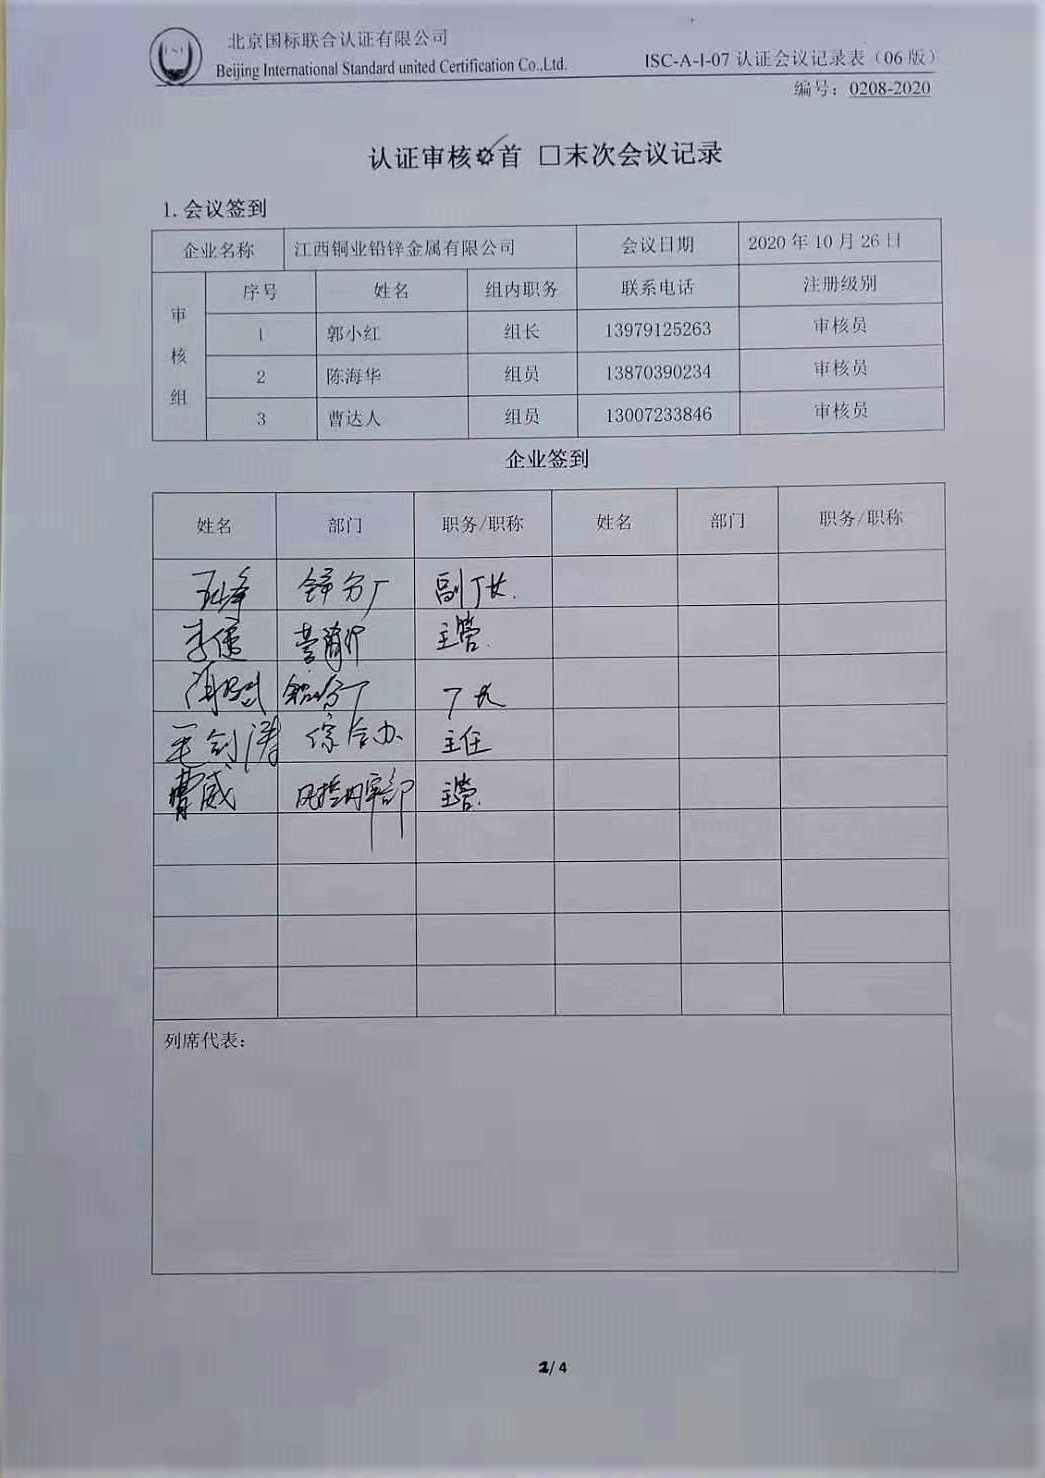 北京国标联合认证有限公司
Beijing International Standard united Certification Co.,Ltd.
ISC-A-I-07 认证会议记录表（06 版）
编号：0208-2020
认证审核 首 □末次会议记录
1. 会议签到
企业名称 江西铜业铅锌金属有限公司 会议日期 2020 年 10 月 26 日
审核组
序号 姓名 组内职务 联系电话 注册级别
1 郭小红 组长 13979125263 审核员
2 陈海华 组员 13870390234 审核员
3 曹达人 组员 13007233846 审核员
企业签到
姓名 部门 职务/职称 姓名 部门 职务/职称
锌分厂 副厂长.
李健 主管.
铅分厂 厂长
毛剑涛 综合办 主任
曹威 风控内审部 主管.
列席代表：
2/ 4